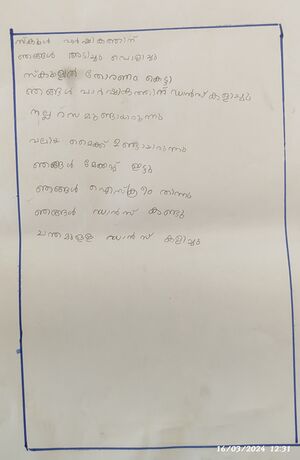 സ്കൂൾ വാർഷികത്തിന്
ഞങ്ങൾ അടിച്ചു പൊളിച്ചു
സ്കൂളിൽ തോരണം കെട്ടി
ഞങ്ങൾ വാർഷികത്തിന് ഡാൻസ് കളിച്ചു
നല്ല രസമുണ്ടായിരുന്നു
വലിയ മൈക്ക് ഉണ്ടായിരുന്നു
ഞങ്ങൾ മേക്കപ്പ് ഇട്ടു
ഞങ്ങൾ ഐസ്ക്രീം തിന്നു
ഞങ്ങൾ ഡാൻസ് കണ്ടു
ചന്തമുള്ള ഡാൻസ് കളിച്ചു
16/03/2024 12:31